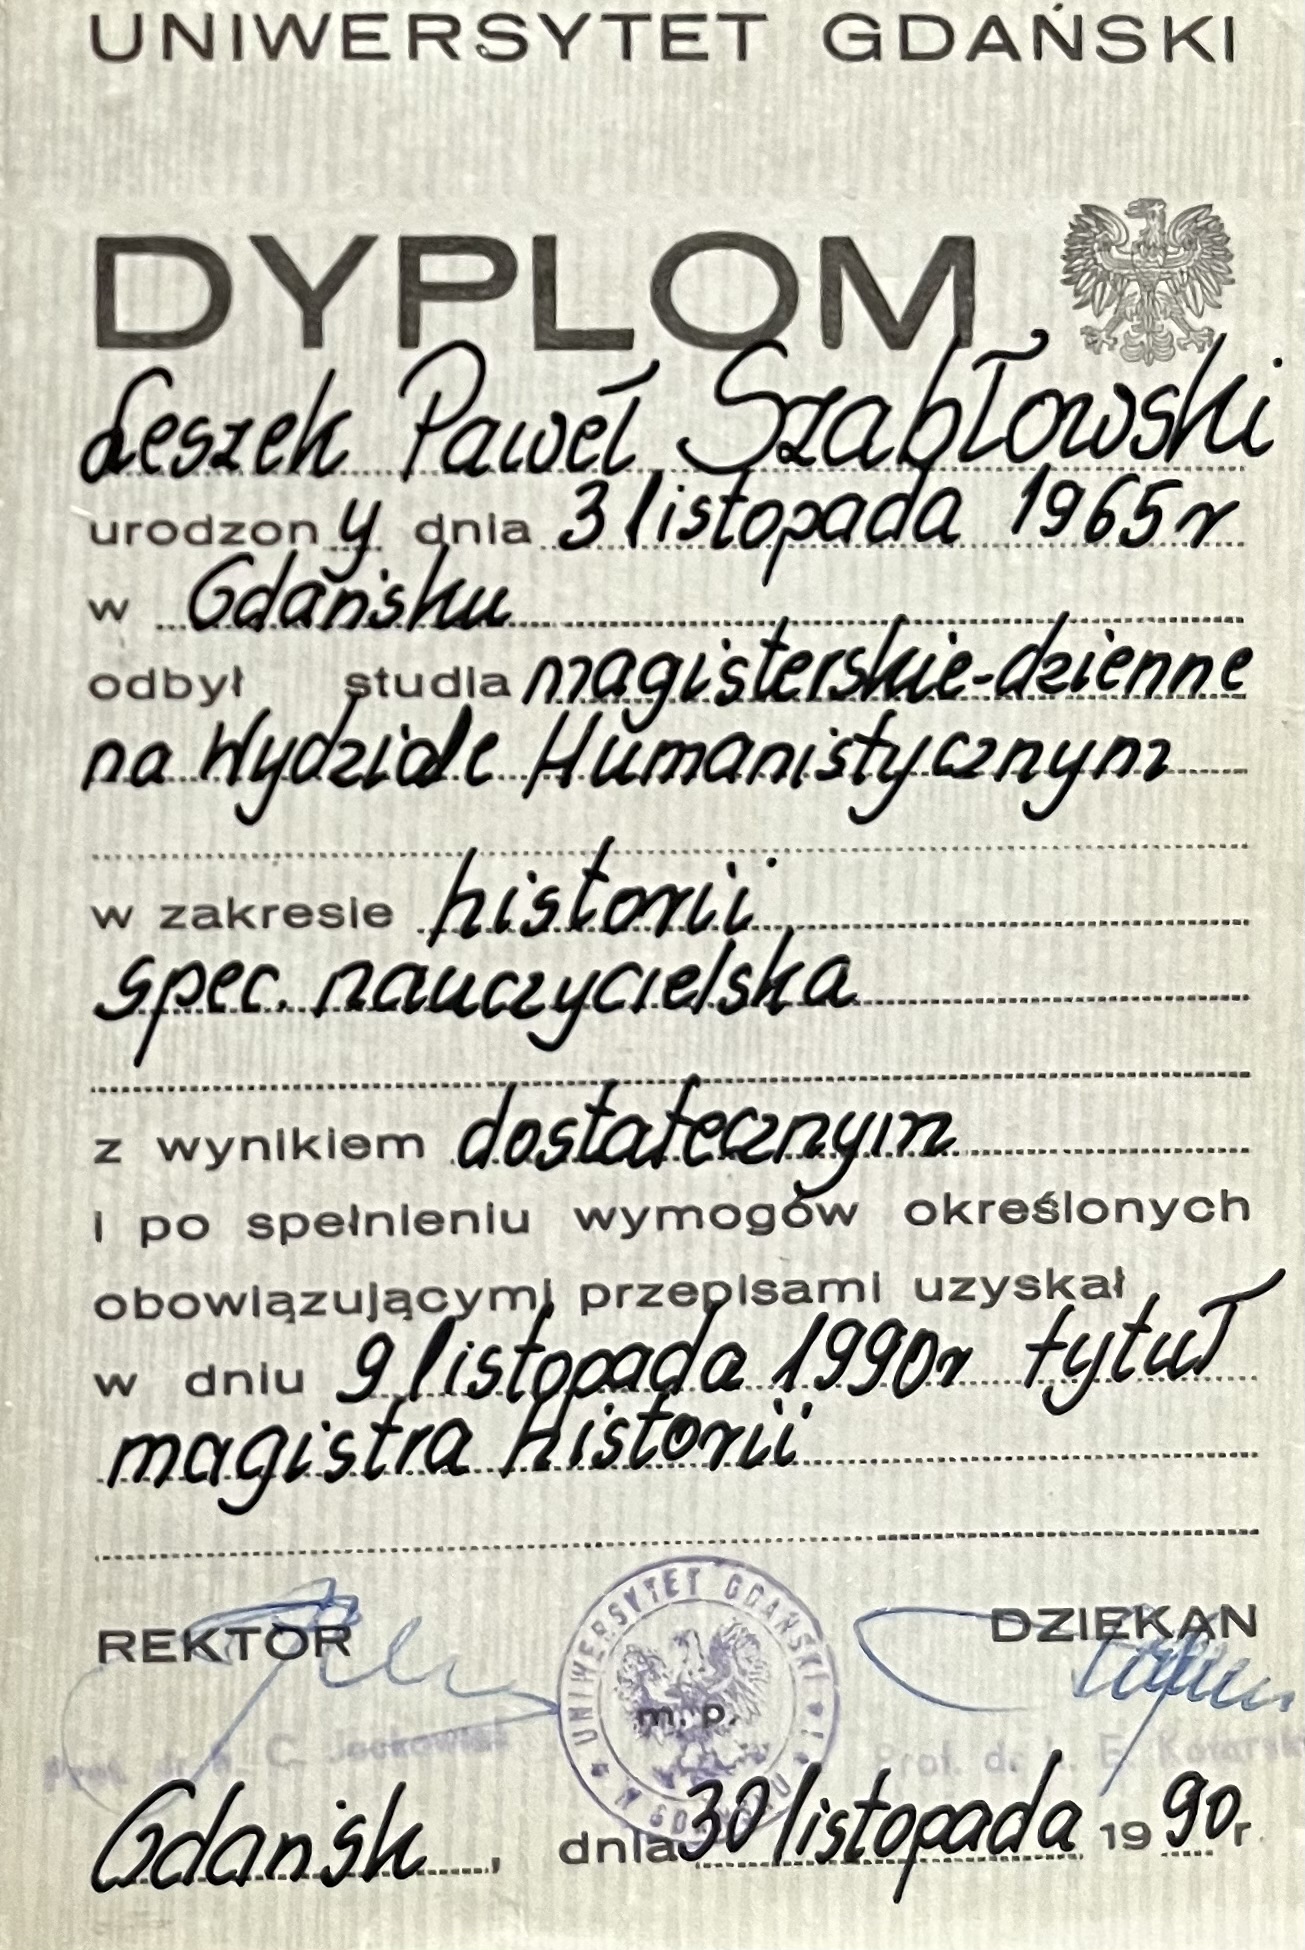 UNIWERSYTET GDAŃSKI
DYPLOM
Leszek Paweł Szabłowski
urodzony dnia 3 listopada 1965 r
w Gdańsku
odbył studia magisterskie-dzienne
na Wydziale Humanistycznym
w zakresie historii
spec. nauczycielska
z wynikiem dostatecznym
i po spełnieniu wymogów określonych
obowiązującymi przepisami uzyskał
w dniu 9 listopada 1990r tytuł
magistra historii
REKTOR DZIEKAN
UNIWERSYTET GDAŃSKI
m. p.
Prof. dr C. Prof. dr E.
Gdańsk, dnia 30 listopada 1990 r.